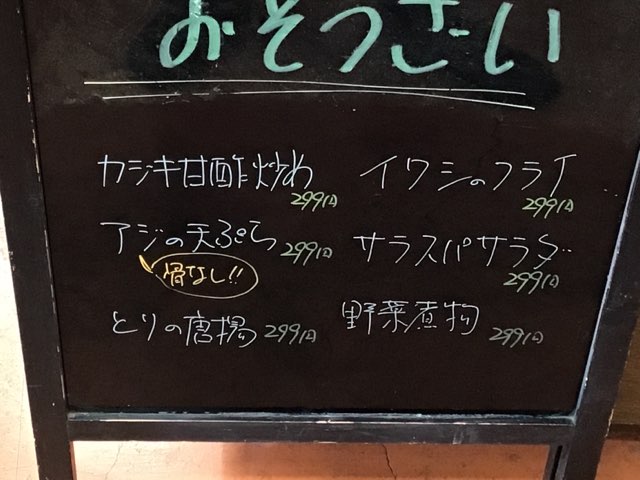 おそうざい
カジキ甘酢炒め
299円
イワシのフライ
299円
アジの天ぷら 299円
骨なし!!
サラスパサラダ
299円
とりの唐揚 299円
野菜煮物
299円